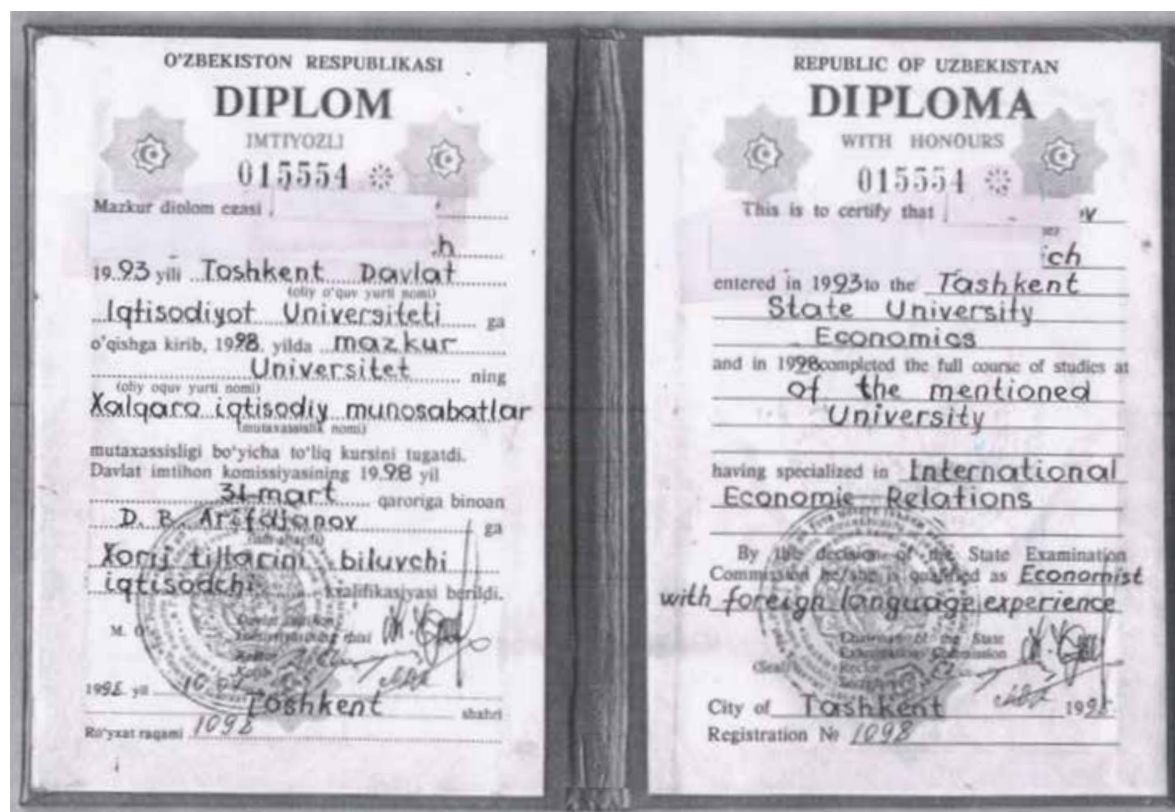 O'ZBEKISTON RESPUBLIKASI
DIPLOM
IMTIYOZLI
015554
Mazkur diplom egasi
h
1993 yili Toshkent Davlat
(oliy o'quv yurti nomi)
Iqtisodiyot Universiteti ga
o'qishga kirib, 1998 yilda mazkur
Universitet ning
(oliy oquv yurti nomi)
Xalqaro iqtisodiy munosabatlar
(mutaxassislik nomi)
mutaxassisligi bo'yicha to'liq kursini tugatdi.
Davlat imtihon komissiyasining 1998 yil
31 mart qaroriga binoan
D. B. Arifdjanov ga
Xorij tillarini biluvchi
iqtisodchi kvalifikasiyasi berildi.
M. O'.
Rektor
1998 yil
Toshkent shahri
Ro'yxat raqami 1098
REPUBLIC OF UZBEKISTAN
DIPLOMA
WITH HONOURS
015554
This is to certify that v
ich
entered in 1993 to the Tashkent
State University
Economics
and in 1998 completed the full course of studies at
of the mentioned
University
having specialized in International
Economic Relations
By the decision of the State Examination
Commission he/she is qualified as Economist
with foreign language experience
Chairman of the State
Examination Commission
(Seal) Rector
City of Tashkent 1998
Registration № 1098